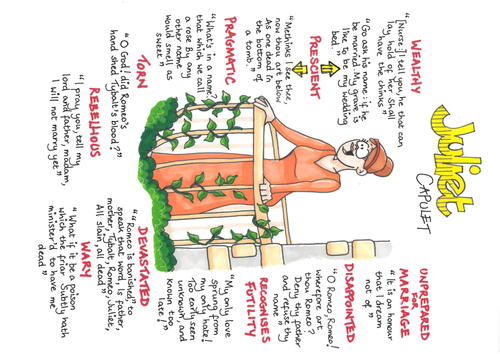 Juliet
CAPULET
WEALTHY
"[Nurse] I tell you, he that can
lay hold of her Shall
have the chinks"
"Go ask his name: if he
be married My grave is
like to be my wedding
bed."
PRESCIENT
"Methinks I see thee,
now thou art below
As one dead in
the bottom of
a tomb."
PRAGMATIC
"What's in a name?
that which we call
a rose By any
other name
would smell as
sweet"
TORN
"O God! did Romeo's
hand shed Tybalt's blood?"
REBELLIOUS
"I pray you, tell my
lord and father, madam,
I will not marry yet"
UNPREPARED
FOR
MARRIAGE
"It is an honour
that I dream
not of"
DISAPPOINTED
"O Romeo, Romeo!
wherefore art
thou Romeo?
Deny thy father
and refuse thy
name"
RECOGNISES
FUTILITY
"My only love
sprung from
my only hate!
Too early seen
unknown, and
known too
late!"
DEVASTATED
"'Romeo is banished,' to
speak that word, Is father,
mother, Tybalt, Romeo, Juliet,
All slain, all dead"
WARY
"What if it be a poison
which the friar Subtly hath
minister'd to have me
dead"